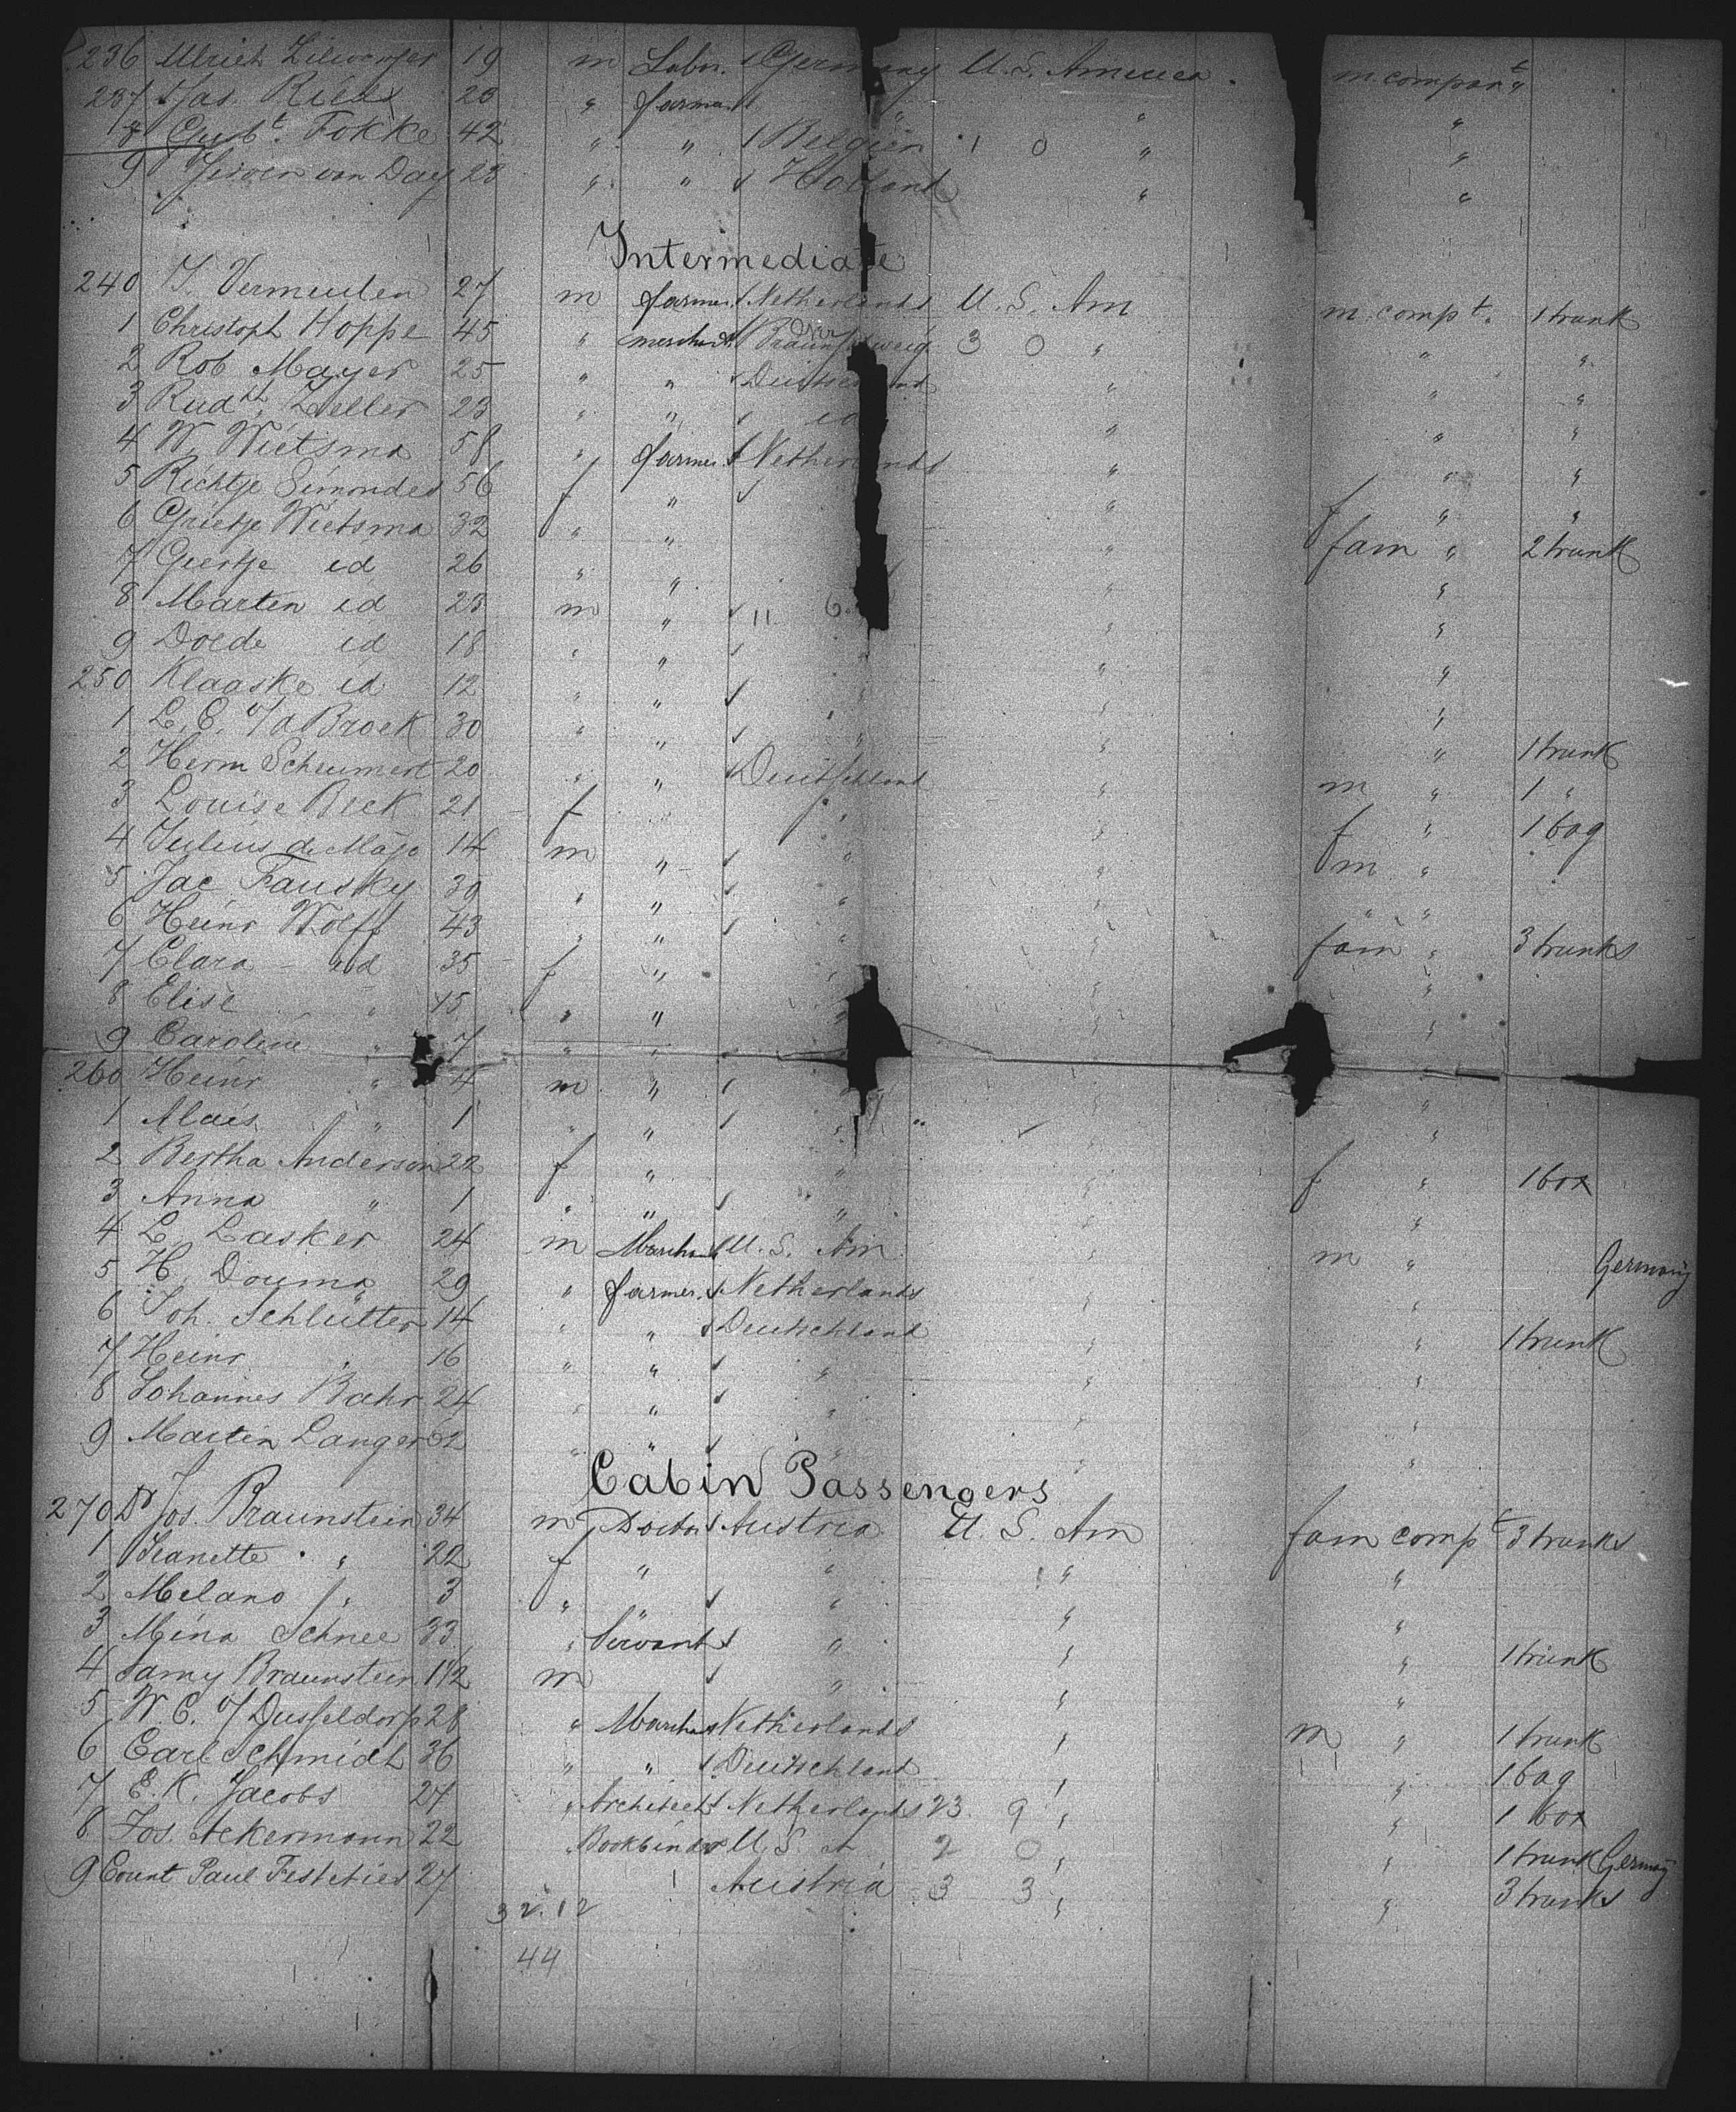 236 Ulrich 19 m Labr. Germany U.S. America. m compart
237 Jas. 23 " farmer " " "
8 Gusbt. Fokke 42 " " Belgien 1 0 " "
9 van Day 23 " " Holland " "
Intermediate
240 J. Vermeulen 27 m farmer Netherlands U. S. Am m compt. 1 trunk
1 Christoph Hoppe 45 " merchant Braunschweig 3 0 " " "
2 Rob Mayer 25 " " Deutschland " " "
3 Rudlf. Zeller 23 " " id " " "
4 W. Wietsma 58 " farmer Netherlands " " "
5 Richtje Simondes 56 f " " f " "
6 Grietje Wietsma 32 " " " fam " 2 trunk
7 Geertje id 26 " " " "
8 Marten id 23 m " 11 6 " "
9 Doede id 18 " " " "
250 Klaaske id 12 " " " " "
1 L. C. v/d Broek 30 " " " " " 1 trunk
2 Herm Scheumert 20 " " Deutschland " m " 1 "
3 Louise Beck 21 f " " " f " 1 bag
4 Julius de 14 m " " " m "
5 Jac Fausky 39 " " " " " "
6 Heinr Wolff 43 " " " " fam " 3 trunks
7 Clara id 35 f " " " "
8 Elise " 15 " " " " "
9 Caroline " 7 " "
260 Heinr " 4 m " " "
1 " 1 " " " " "
2 Bertha Anderson 22 f " " " f " 1 box
3 Anna " 1 " " " " "
4 L. Lasker 24 m Merchant U. S. Am " m " Germany
5 H. Douma 29 " farmer Netherlands " "
6 Joh. Schlütter 14 " " Deutschland " " 1 trunk
7 Heinr " 16 " " " " "
8 Johannes Bahr 24 " " " " "
9 Martin Langer 32 " " " "
Cabin Passengers
270 Dr Jos. Braunstein 34 m Doctor Austria U. S. Am fam compt 3 trunks
1 Jeanette " 22 f " " " "
2 Melano " 3 " " " " "
3 Mina Schnee 33 " Servant " " " 1 trunk
4 Samy Braunstein 1 1/2 m " " "
5 W. C. v/ Dusseldorp 28 " Merchant Netherlands " m " 1 trunk
6 Carl Schmidt 36 " " Deutschland " " 1 bag
7 E. K. Jacobs 27 " Architect Netherlands 23 9 " " 1 box
8 Jos. Ackermann 22 Bookbinder U. S. A 2 0 " " 1 trunk Germany
9 Count Paul Festetics 27 Austria 3 3 " " 3 trunks
32. 12
44